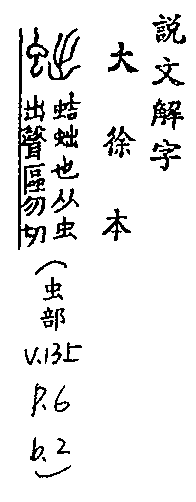 説文解字
大徐本
蛣䖦也从虫
出聲區勿切
(虫部
V.13下
P.6
b.2)